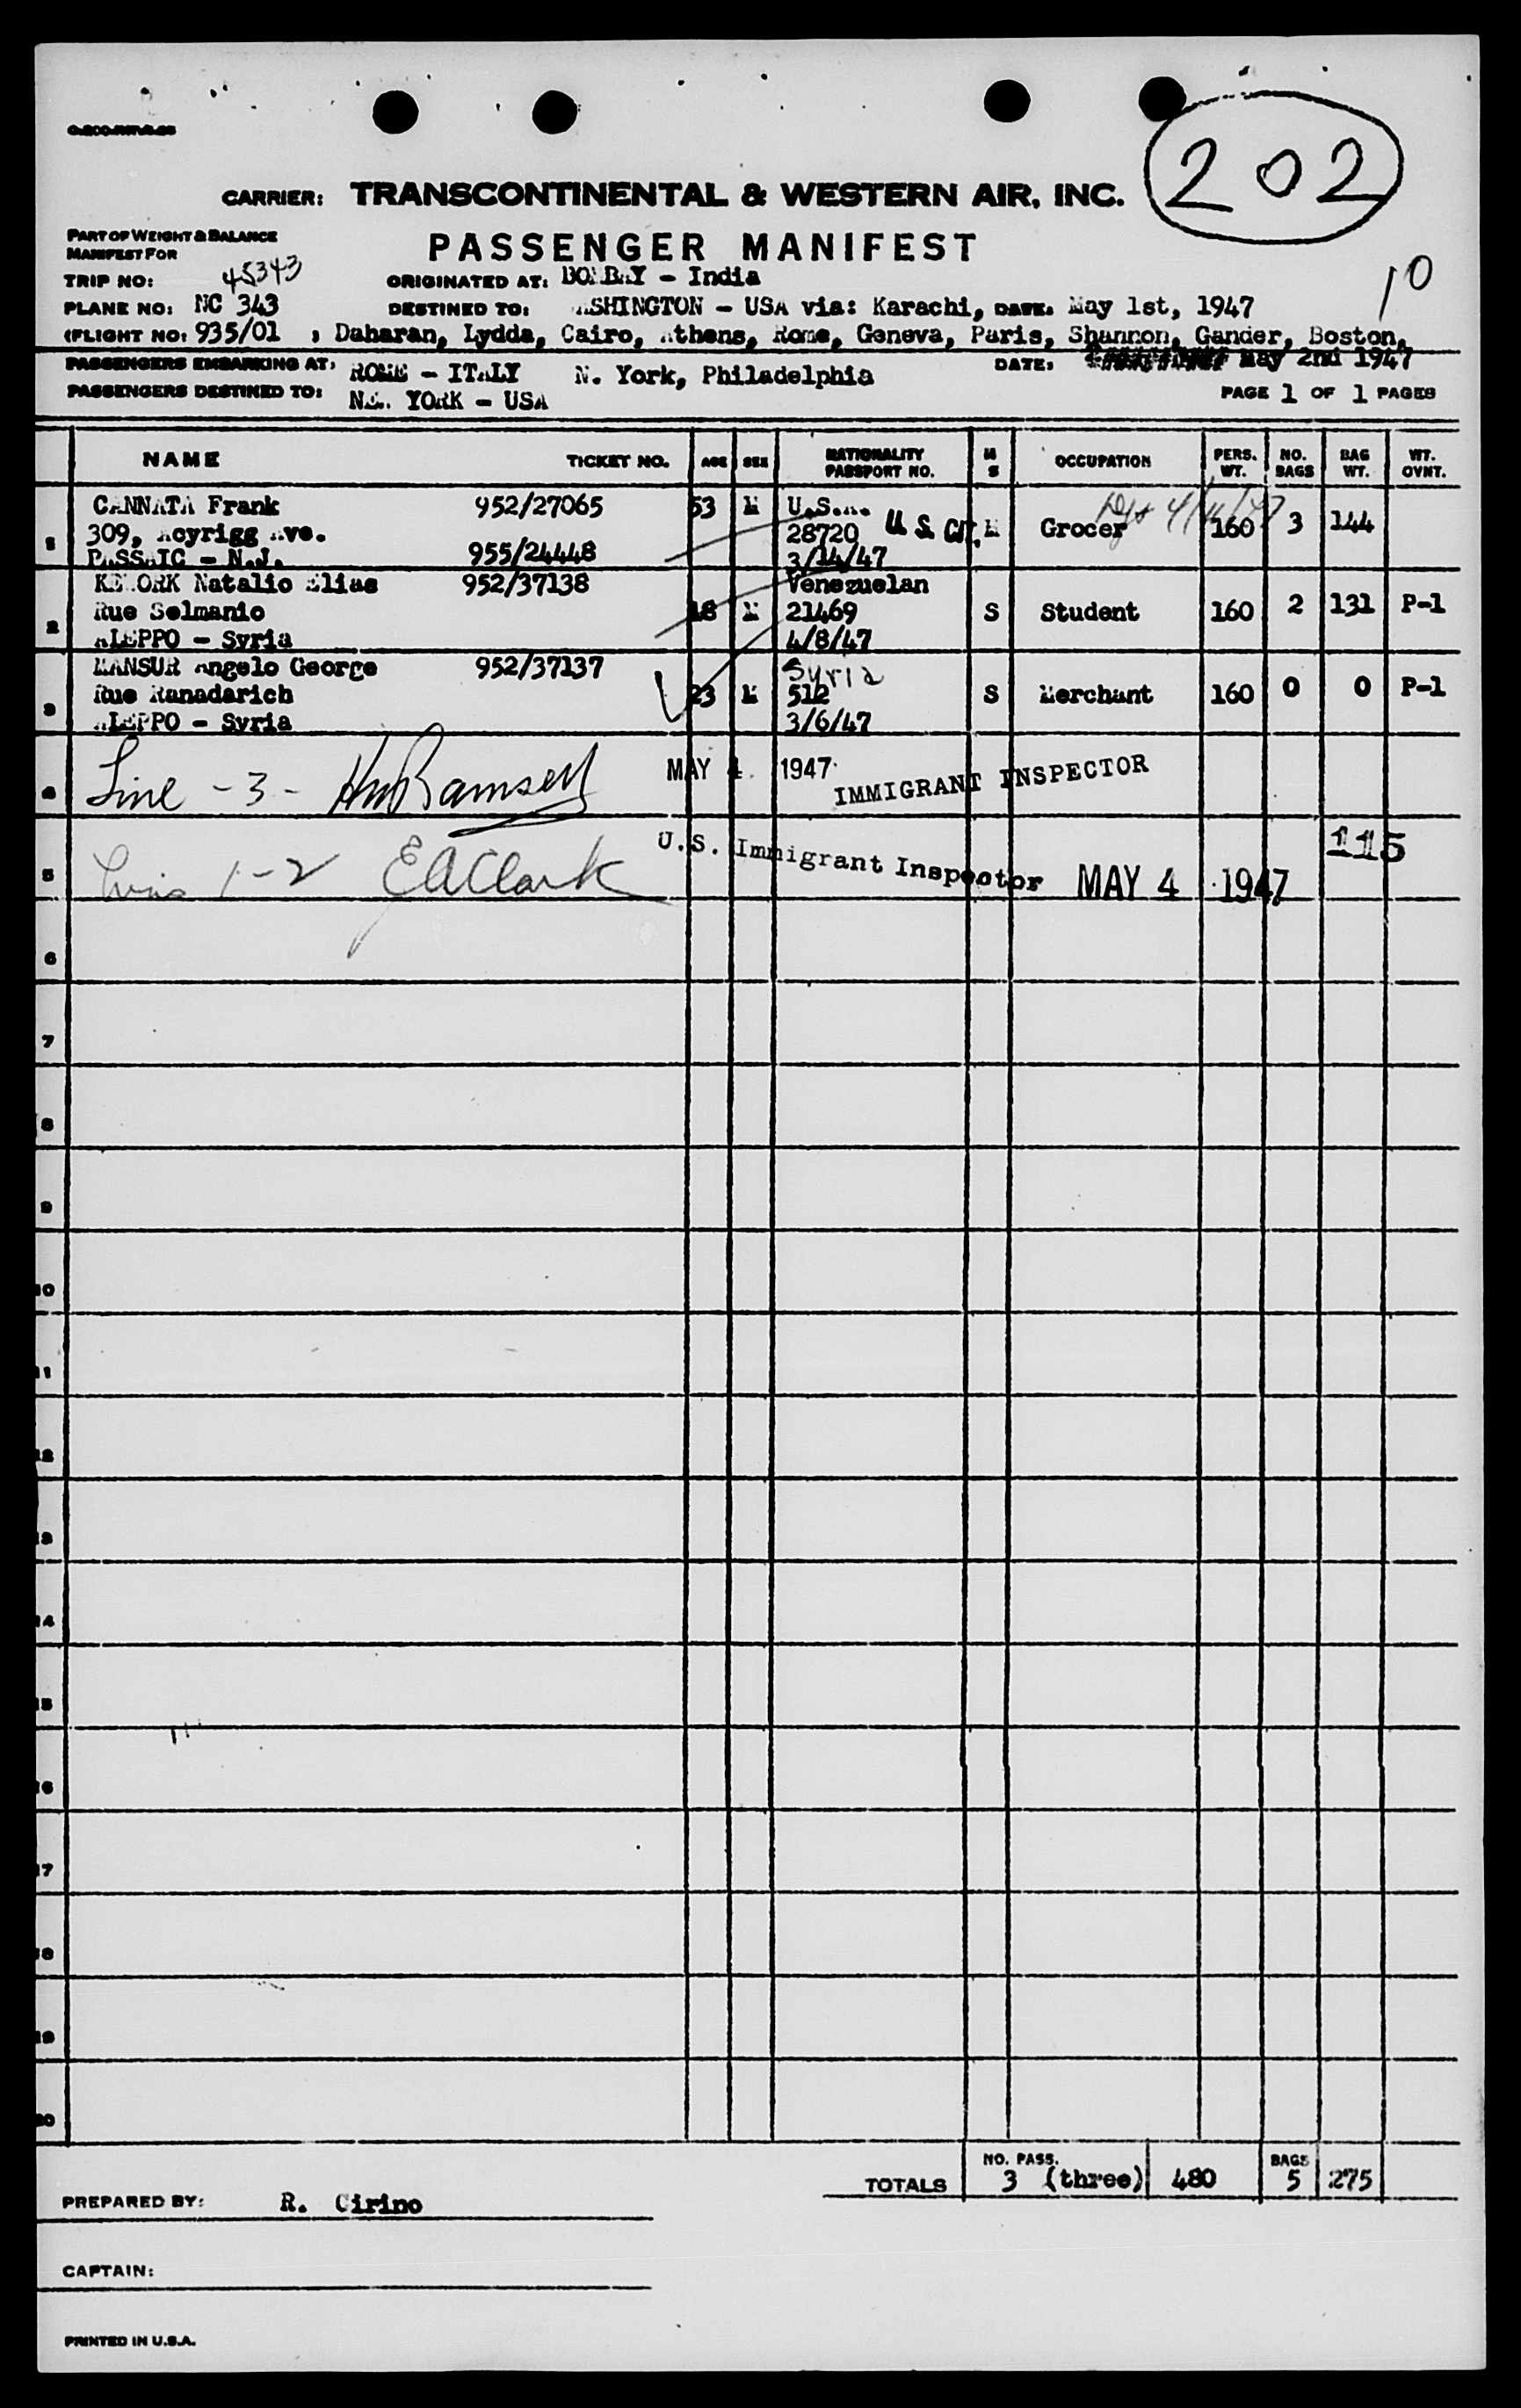 202
CARRIER: TRANSCONTINENTAL & WESTERN AIR, INC.
PART OF WEIGHT & BALANCE
MANIFEST FOR
PASSENGER MANIFEST
10
TRIP NO: 45343 ORIGINATED AT: BOMBAY - India
PLANE NO: NC 343 DESTINED TO: WASHINGTON - USA via: Karachi, DATE. May 1st, 1947
(FLIGHT NO: 935/01 , Daharan, Lydda, Cairo, Athens, Rome, Geneva, Paris, Shannon, Gander, Boston,
PASSENGERS EMBARKING AT: ROME - ITALY N. York, Philadelphia DATE: May 2nd 1947
PASSENGERS DESTINED TO: NEW YORK - USA PAGE 1 OF 1 PAGES
NAME TICKET NO. AGE SEX NATIONALITY PASSPORT NO. M S OCCUPATION PERS. WT. NO. BAGS BAG WT. WT. OVNT.
CANNATA Frank 952/27065 53 M U.S.A.
1 309, Ave. 28720 U.S. CIT. M Grocer 160 3 144
PASSAIC - N.J. 955/24448 3/14/47
Natalio Elias 952/37138 Venezuelan
2 Rue Selmanio 18 M 21469 S Student 160 2 131 P-1
ALEPPO - Syria 4/8/47
MANSUR Angelo George 952/37137 Syria
3 Rue Ranadarich 23 M 512 S Merchant 160 0 0 P-1
ALEPPO - Syria 3/6/47
4 Line - 3 - Ramsey MAY 4 1947 IMMIGRANT INSPECTOR
115
5 1-2 E A Clark U.S. Immigrant Inspector MAY 4 1947
6
7
8
9
10
11
12
13
14
15
16
17
18
19
20
TOTALS NO. PASS. 3 (three) 480 BAGS 5 275
PREPARED BY: R. Cirino
CAPTAIN:
PRINTED IN U.S.A.